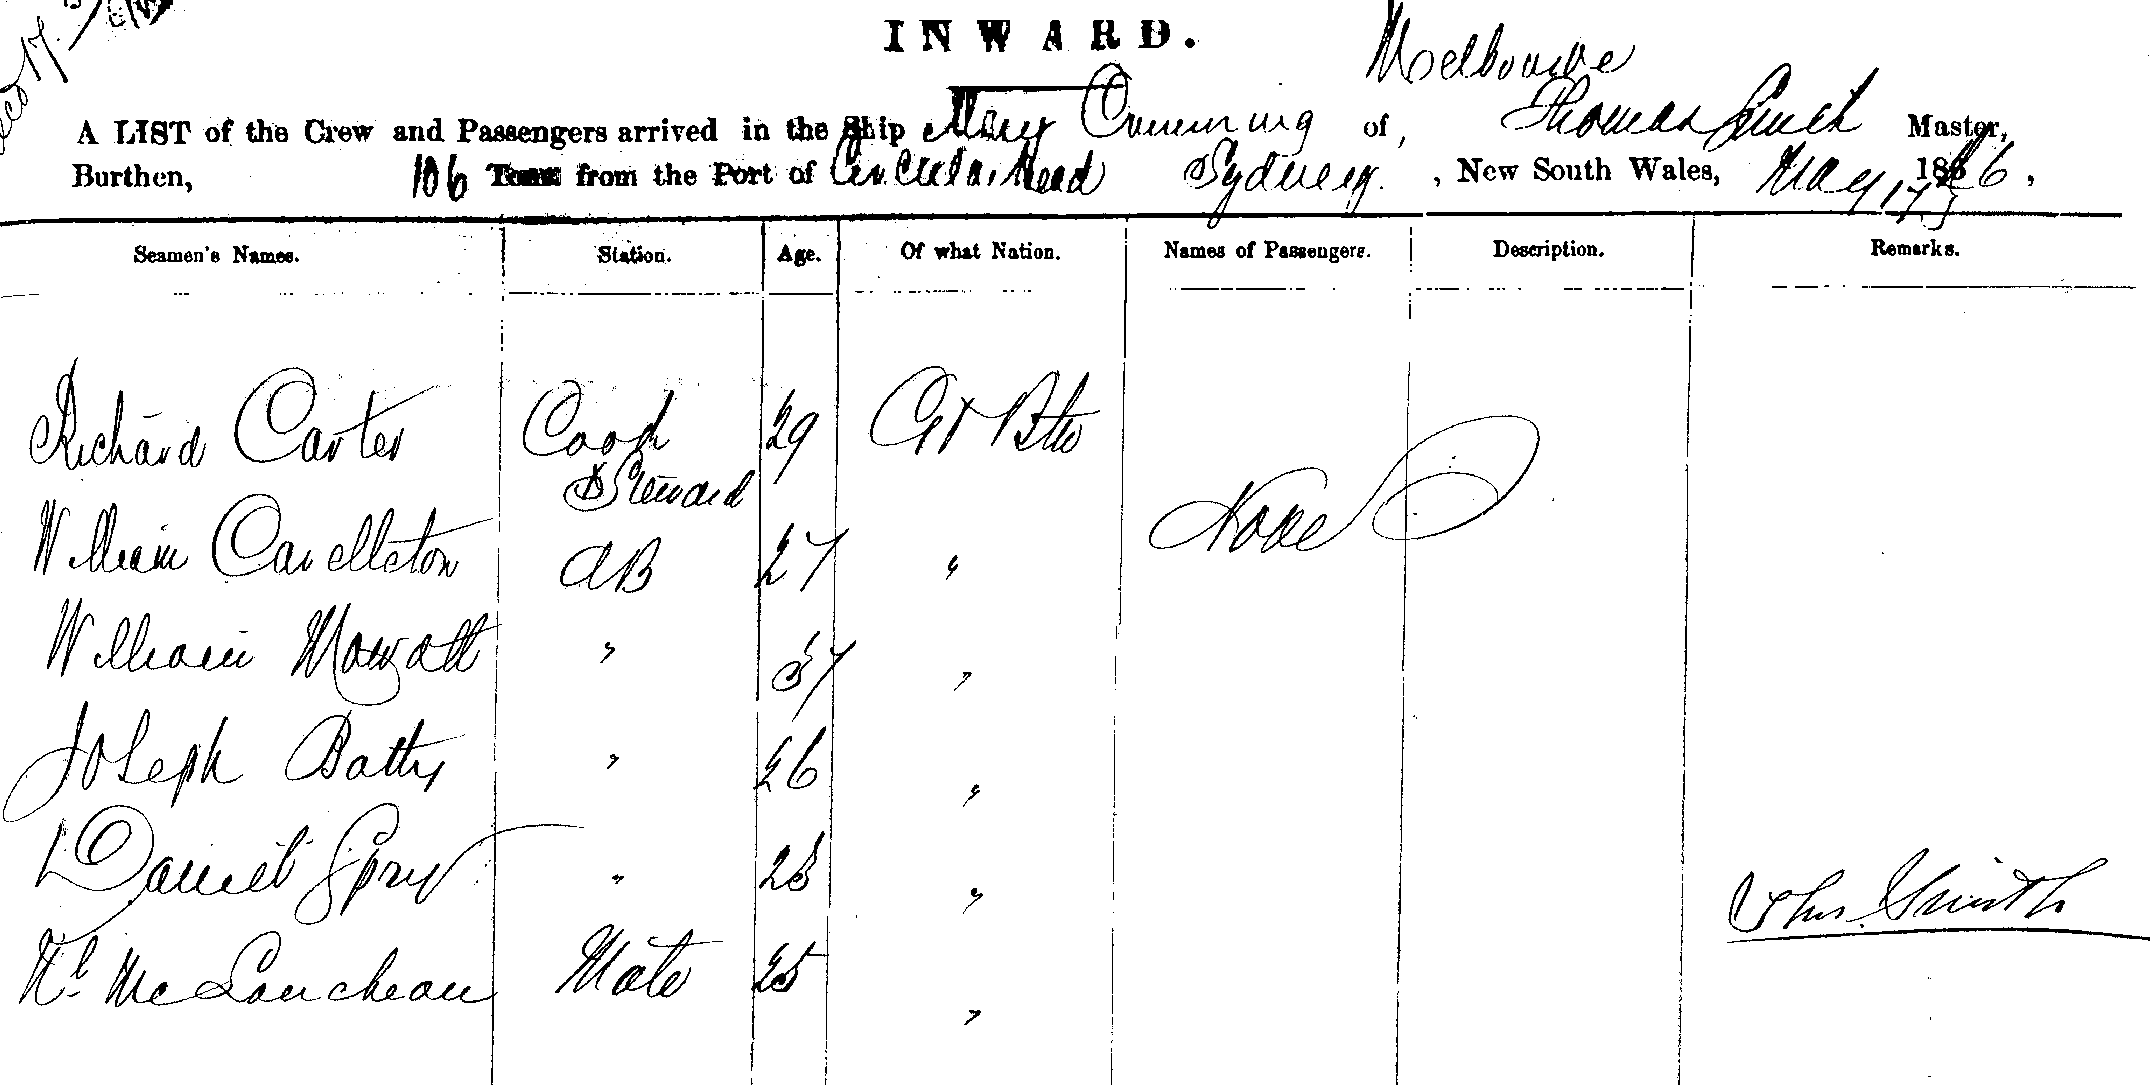 INWARD.
Melbourne
A LIST of the Crew and Passengers arrived in the Ship Mary Cumming of, Thomas Smith Master,
Burthen, 106 Tons from the Port of Circular Head Sydney. , New South Wales, May, 17 1886,
Seamen's Names. Station. Age. Of what Nation. Names of Passengers. Description. Remarks.
Richard Carter Cook 29 Gt Btn
& Steward
None
William AB 27 "
William Mowatt " 37 "
Joseph Batty " 26 "
Daniel Spry " 23 "
Thos. Smith
Mc Mate 25 "